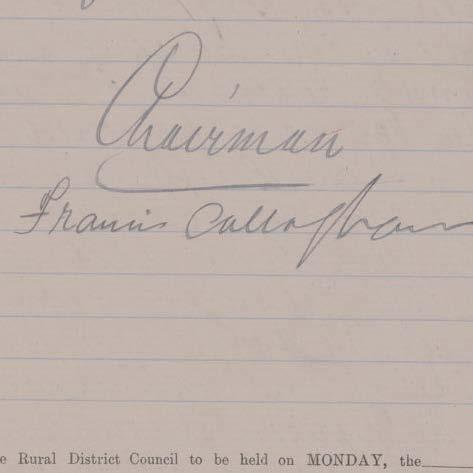 Chairman
Francis Callaghan
e Rural District Council to be held on MONDAY, the